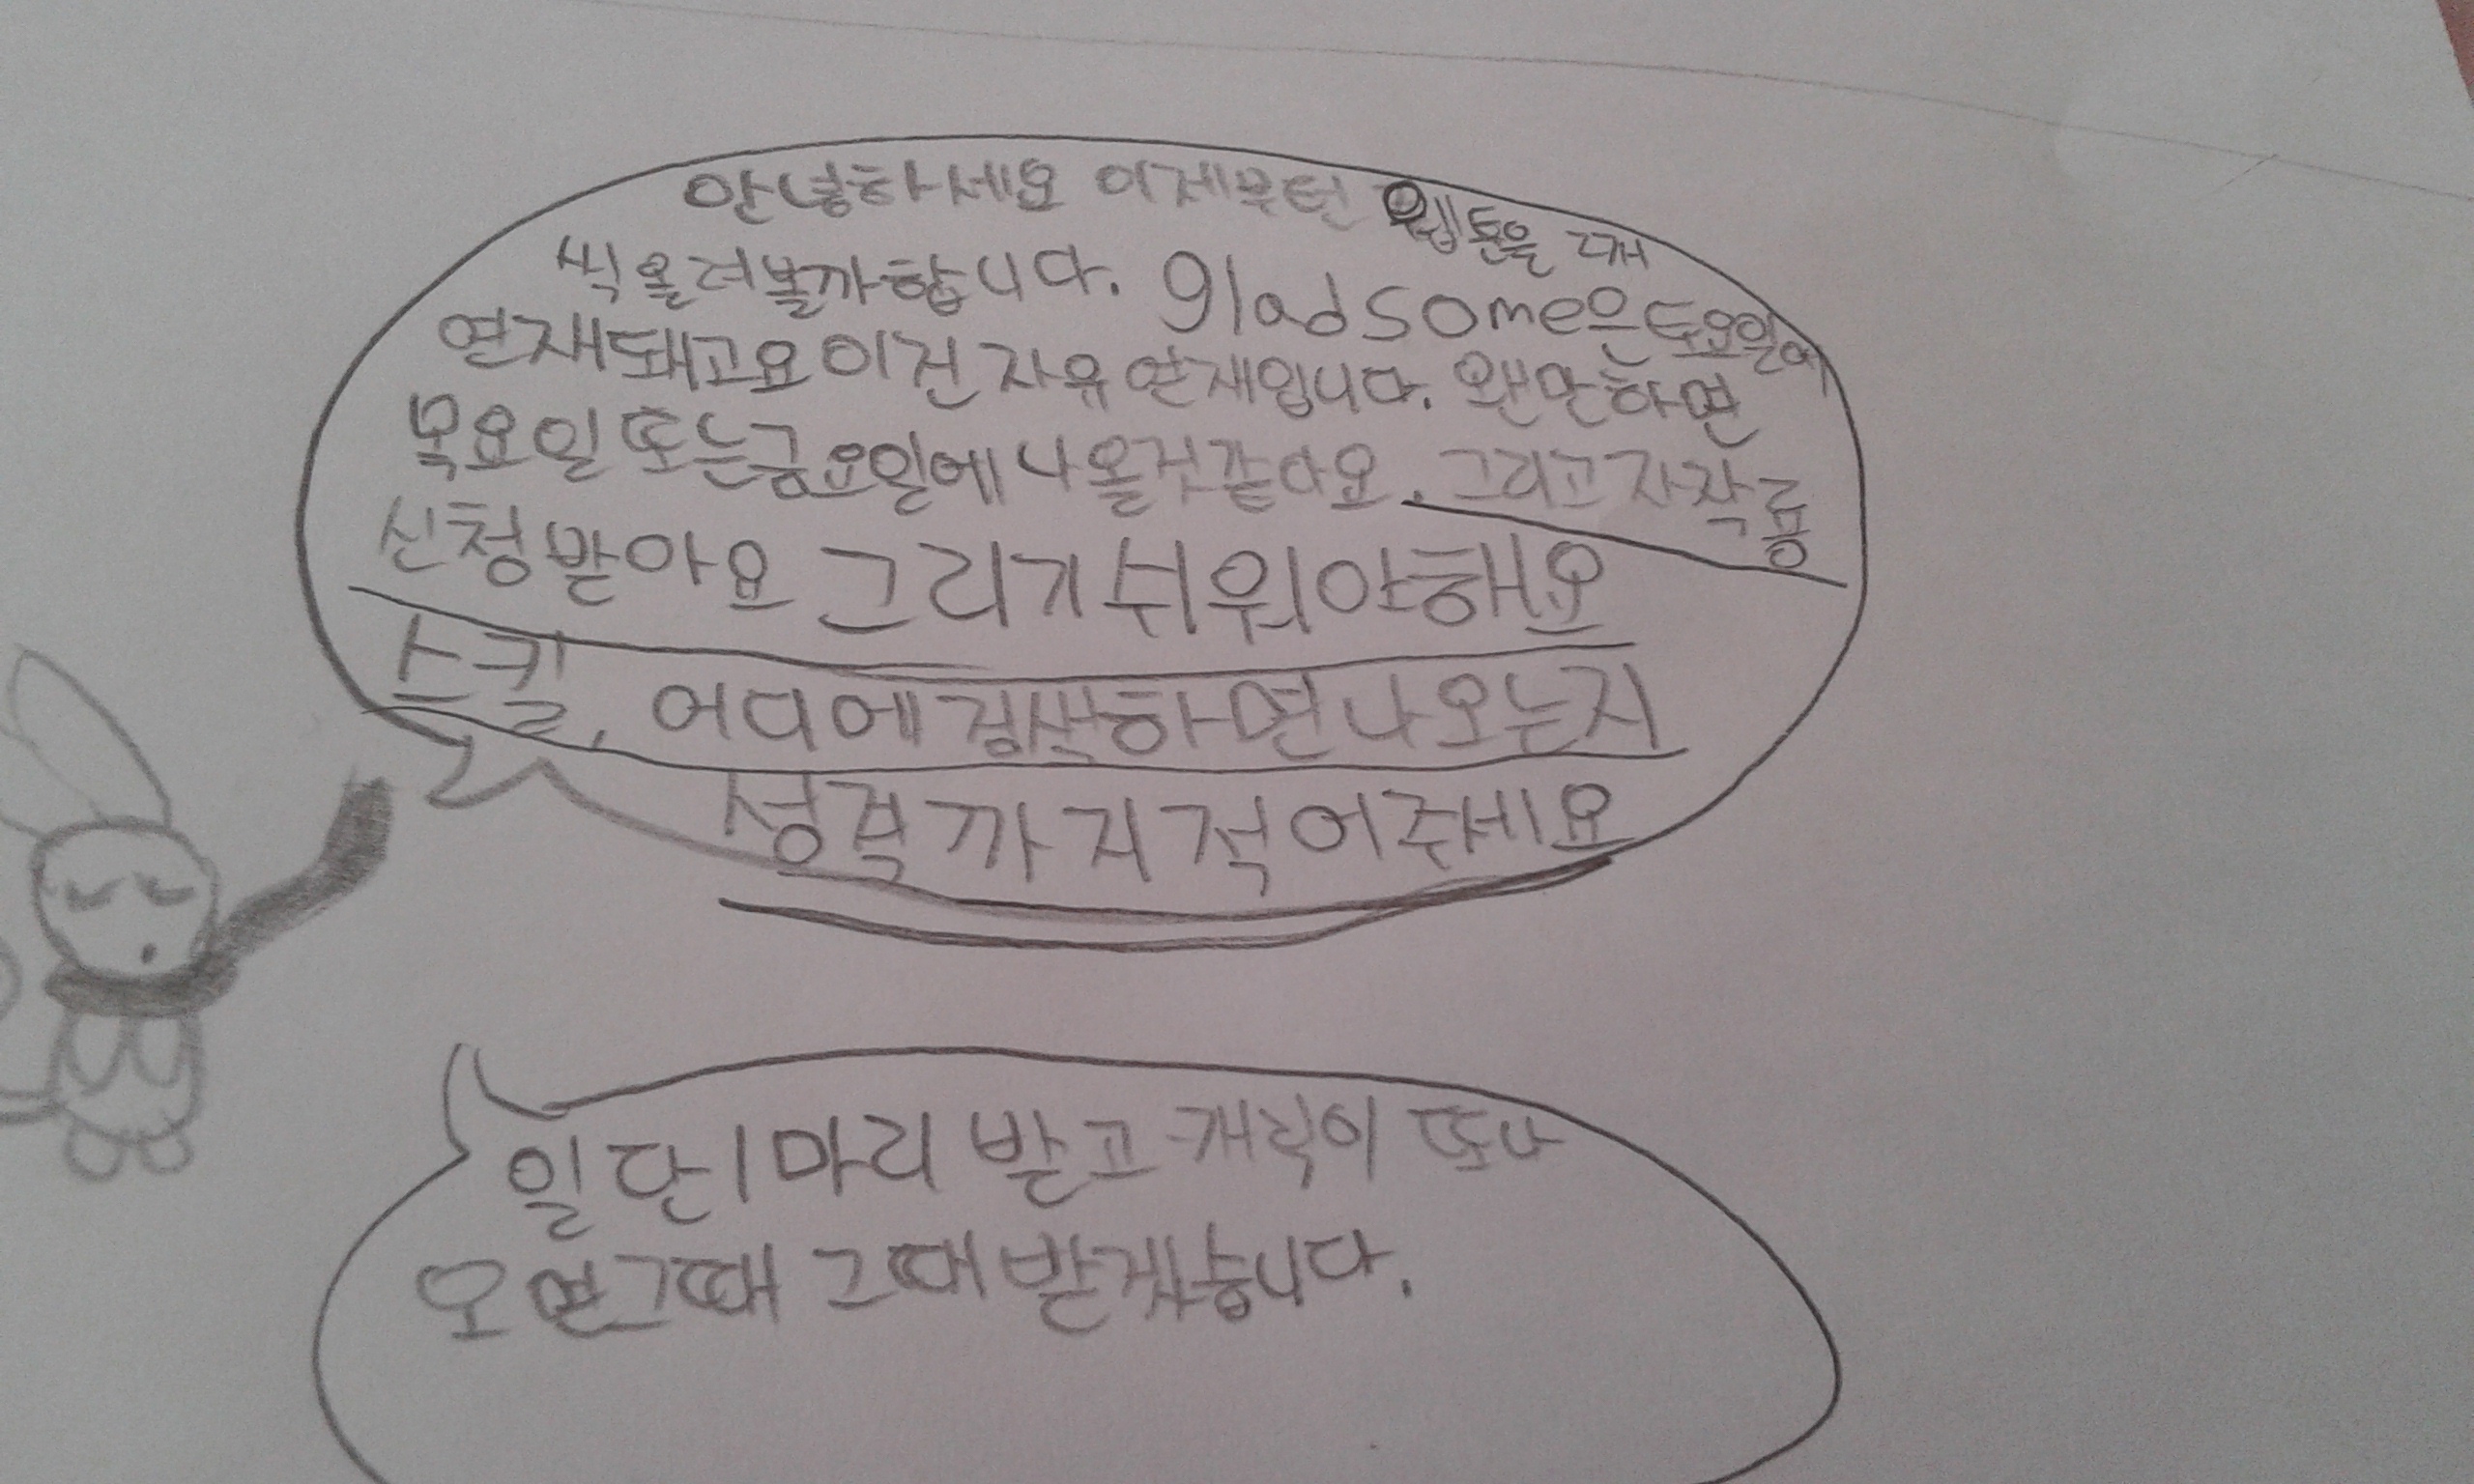 안녕하세요 이제부턴 웹툰을 2개
씩 올려볼까합니다. gladsome은 토요일에
연재돼고요 이건 자유 연재입니다. 왠만하면
목요일 또는 금요일에 나올것같아요. 그리고 자작룡
신청 받아요 그리기 쉬워야해요
스킬, 어디에 검색하면 나오는지
성격까지 적어주세요
일단 1마리 받고 캐릭이 또나
오면 그때 그때 받겠습니다.